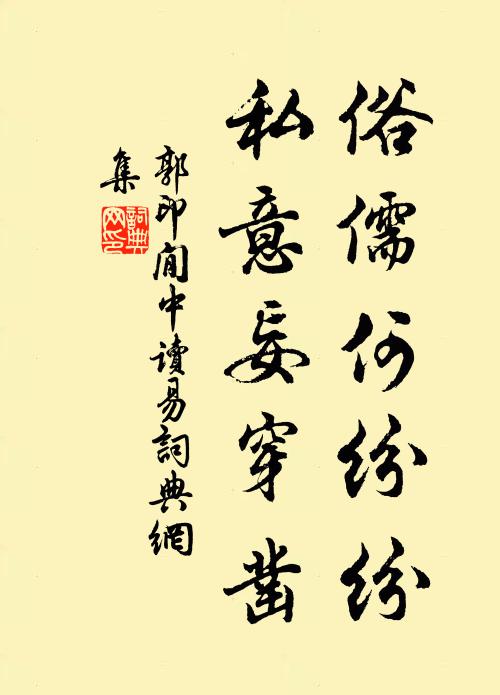 俗儒何紛紛
私意妄穿凿
郭印閒中讀易詞典網
集
詞典
网印